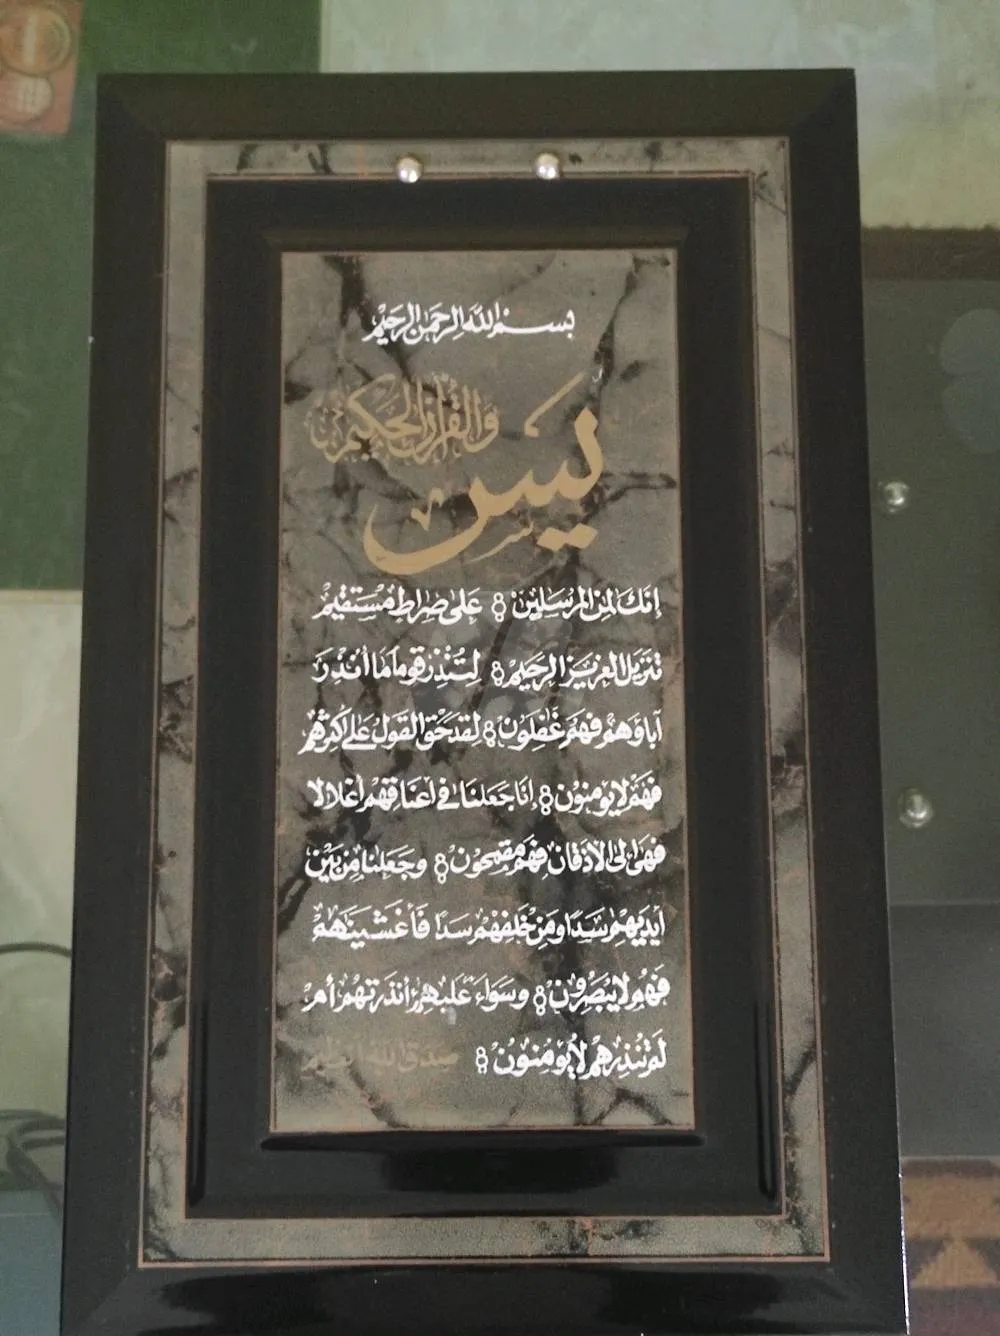 بسم الله الرحمن الرحيم
يس والقرآن الحكيم
إنك لمن المرسلين على صراط مستقيم
تنزيل العزيز الرحيم لتنذر قوما ما أنذر
آباؤهم فهم غفلون لقد حق القول على أكثرهم
فهم لا يؤمنون إنا جعلنا في أعناقهم أغلالا
فهي إلى الأذقان فهم مقمحون وجعلنا من بين
أيديهم سدا ومن خلفهم سدا فأغشينهم
فهم لا يبصرون وسواء عليهم أنذرتهم أم
لم تنذرهم لا يؤمنون صدق الله العظيم